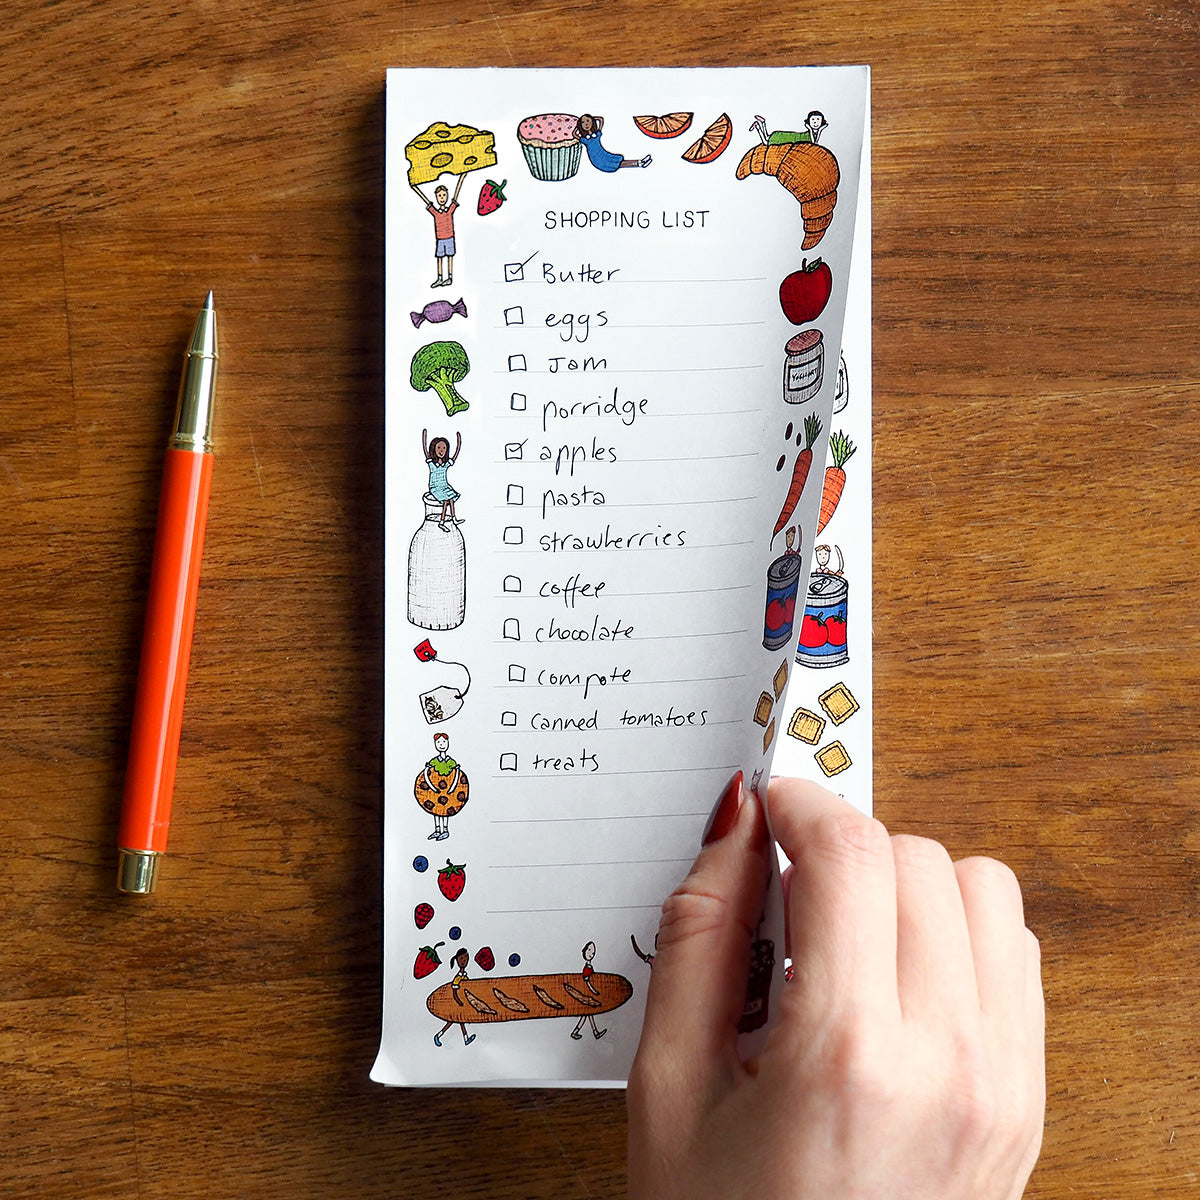 SHOPPING LIST
Butter
eggs
Jam
porridge
YOGHURT
apples
pasta
strawberries
coffee
chocolate
compote
canned tomatoes
treats